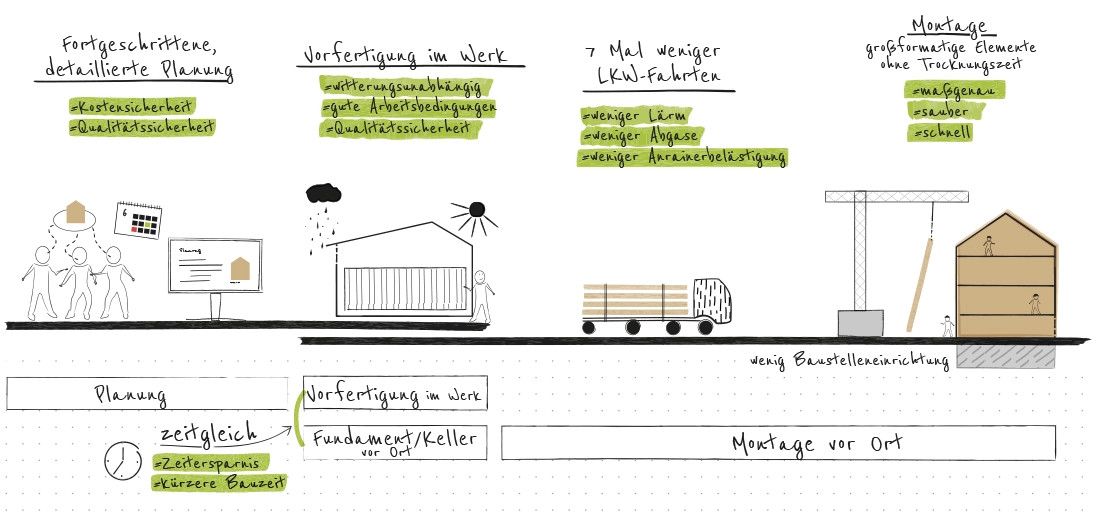 Fortgeschrittene,
detaillierte Planung
=Kostensicherheit
=Qualitätssicherheit
Vorfertigung im Werk
=witterungsunabhängig
=gute Arbeitsbedingungen
=Qualitätssicherheit
7 Mal weniger
LKW-Fahrten
=weniger Lärm
=weniger Abgase
=weniger Anrainerbelästigung
Montage
großformatige Elemente
ohne Trocknungszeit
=maßgenau
=sauber
=schnell
6
Planung
wenig Baustelleneinrichtung
Planung
Vorfertigung im Werk
zeitgleich
=Zeitersparnis
=kürzere Bauzeit
Fundament/Keller
vor Ort
Montage vor Ort